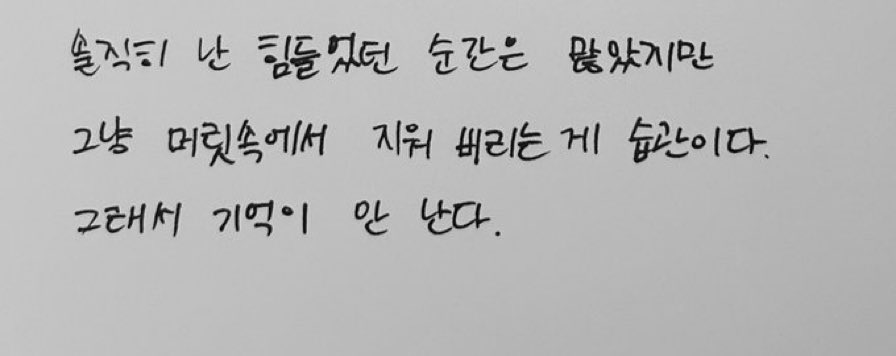 솔직히 난 힘들었던 순간은 많았지만
그냥 머릿속에서 지워 버리는 게 습관이다.
그래서 기억이 안 난다.